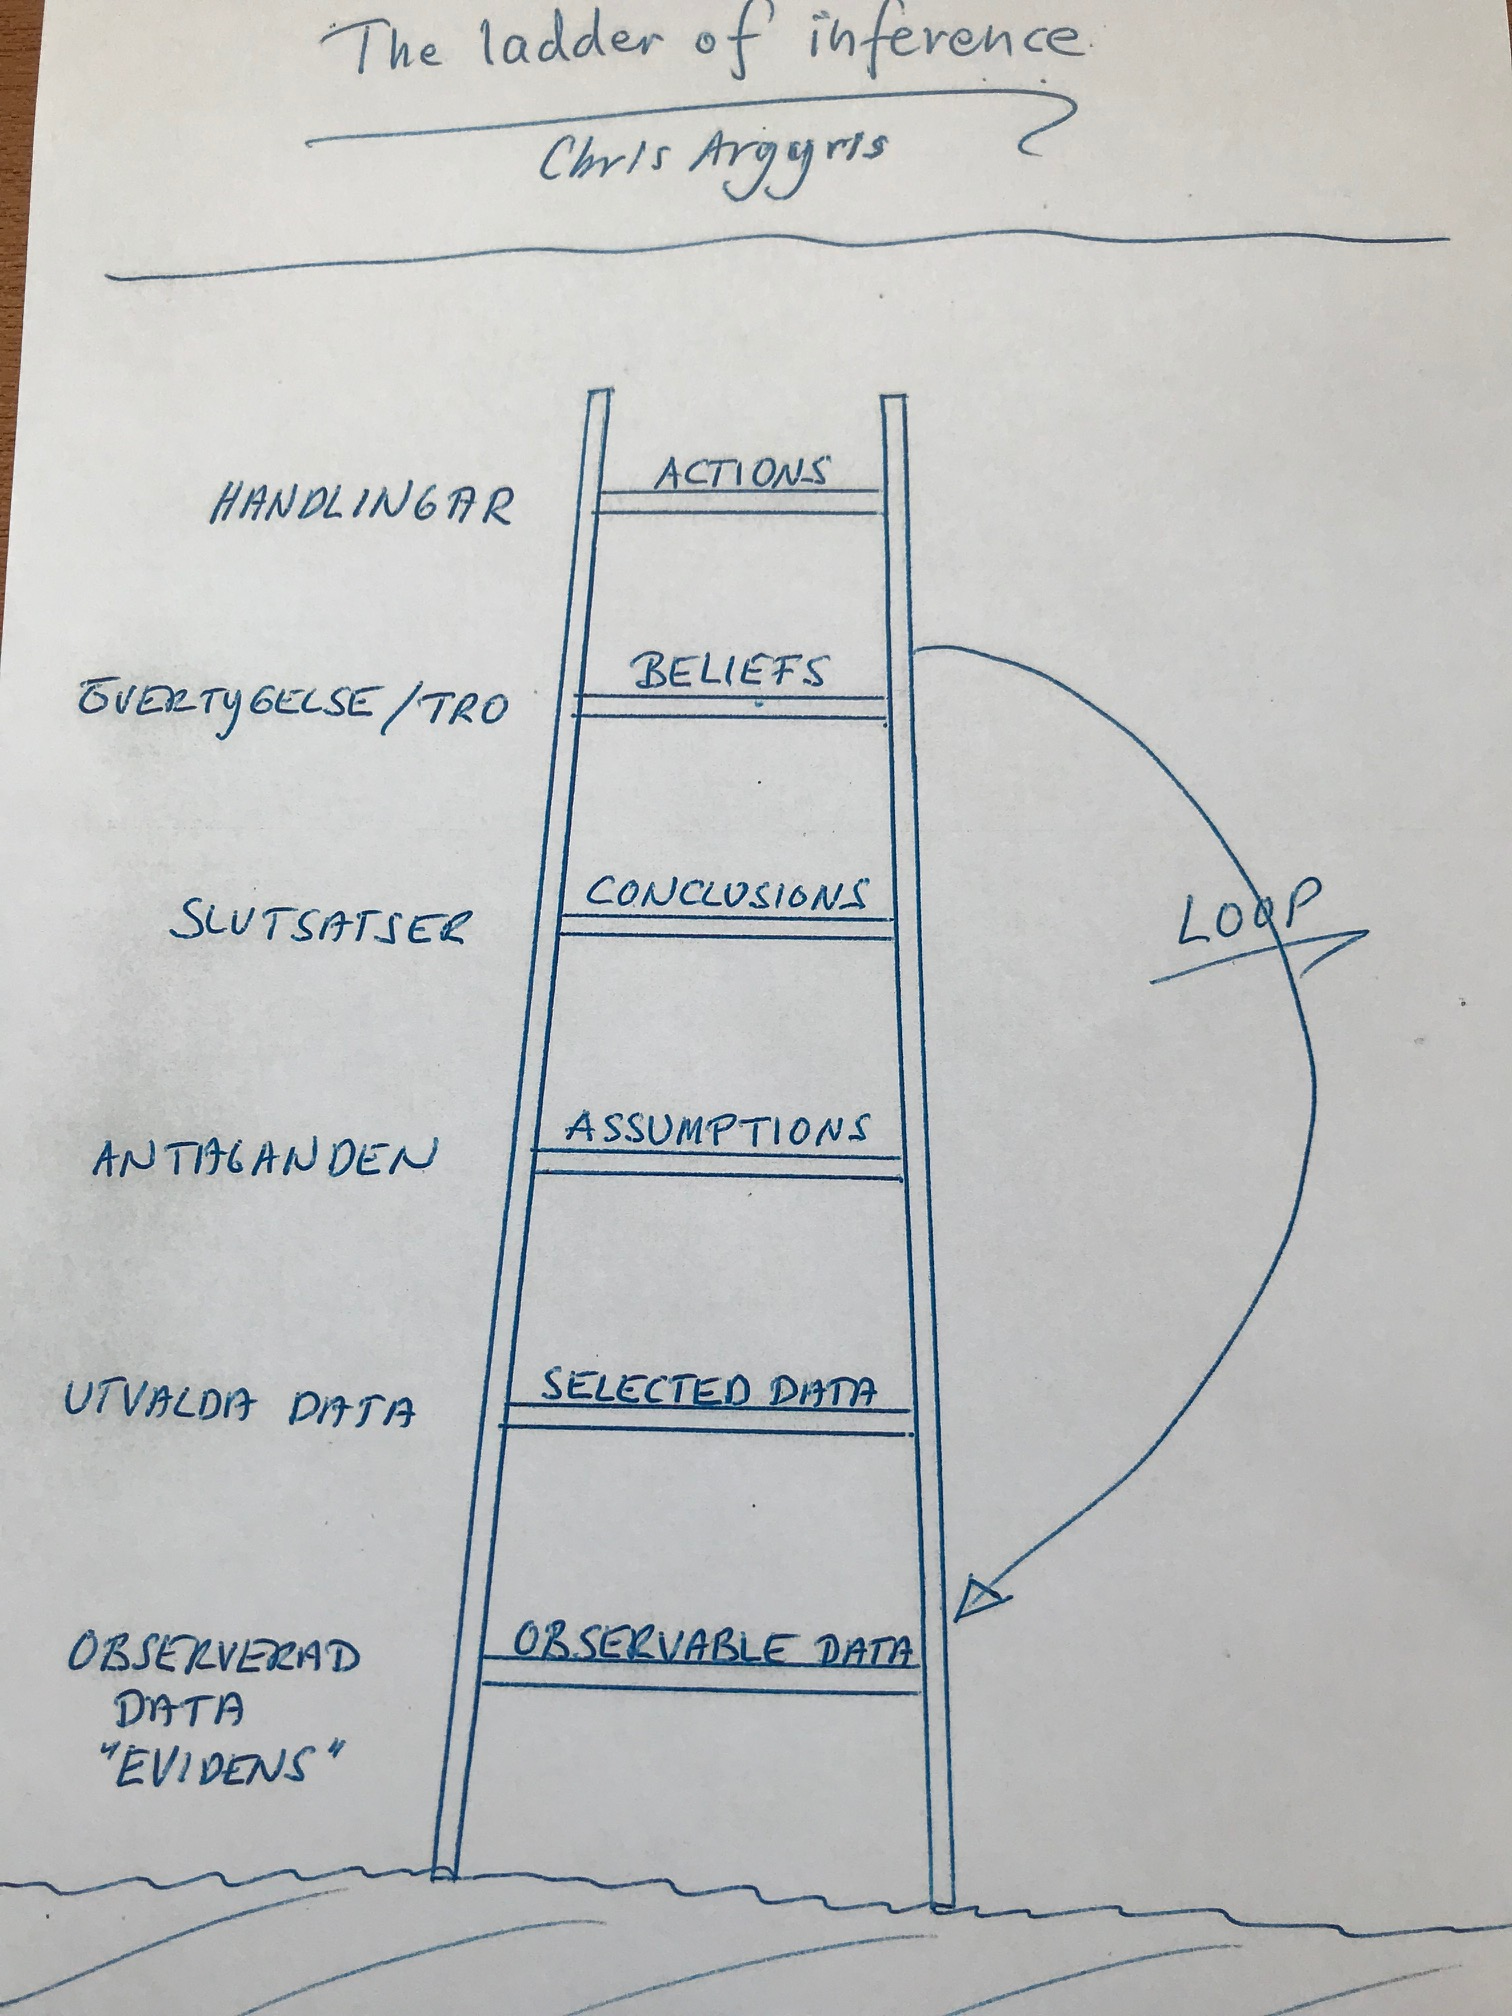 The ladder of inference
Chris Argyris
HANDLINGAR
ACTIONS
ÖVERTYGELSE/TRO
BELIEFS
SLUTSATSER
CONCLUSIONS
LOOP
ANTAGANDEN
ASSUMPTIONS
UTVALDA DATA
SELECTED DATA
OBSERVERAD
DATA
"EVIDENS"
OBSERVABLE DATA